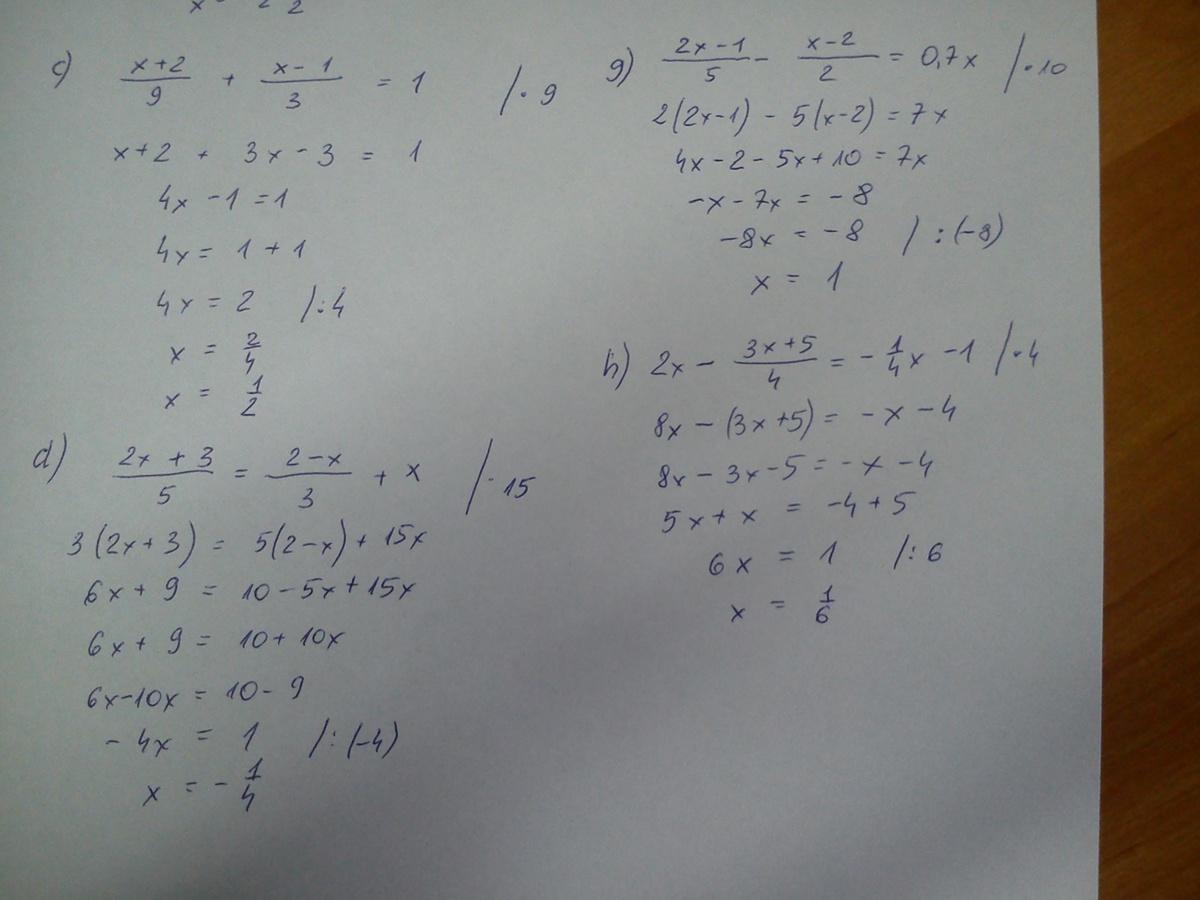 c) (x+2)/9 + (x-1)/3 = 1 /·9
x+2 + 3x-3 = 1
4x-1=1
4x = 1+1
4x = 2 /:4
x = 2/4
x = 1/2
d) (2x+3)/5 = (2-x)/3 + x /·15
3(2x+3) = 5(2-x)+15x
6x+9 = 10-5x+15x
6x+9 = 10+10x
6x-10x = 10-9
-4x = 1 /:(-4)
x = -1/4
g) (2x-1)/5 - (x-2)/2 = 0,7x /·10
2(2x-1) - 5(x-2) = 7x
4x-2-5x+10=7x
-x-7x = -8
-8x = -8 /:(-8)
x = 1
h) 2x - (3x+5)/4 = -1/4x -1 /·4
8x-(3x+5) = -x-4
8x-3x-5=-x-4
5x+x = -4+5
6x = 1 /:6
x = 1/6